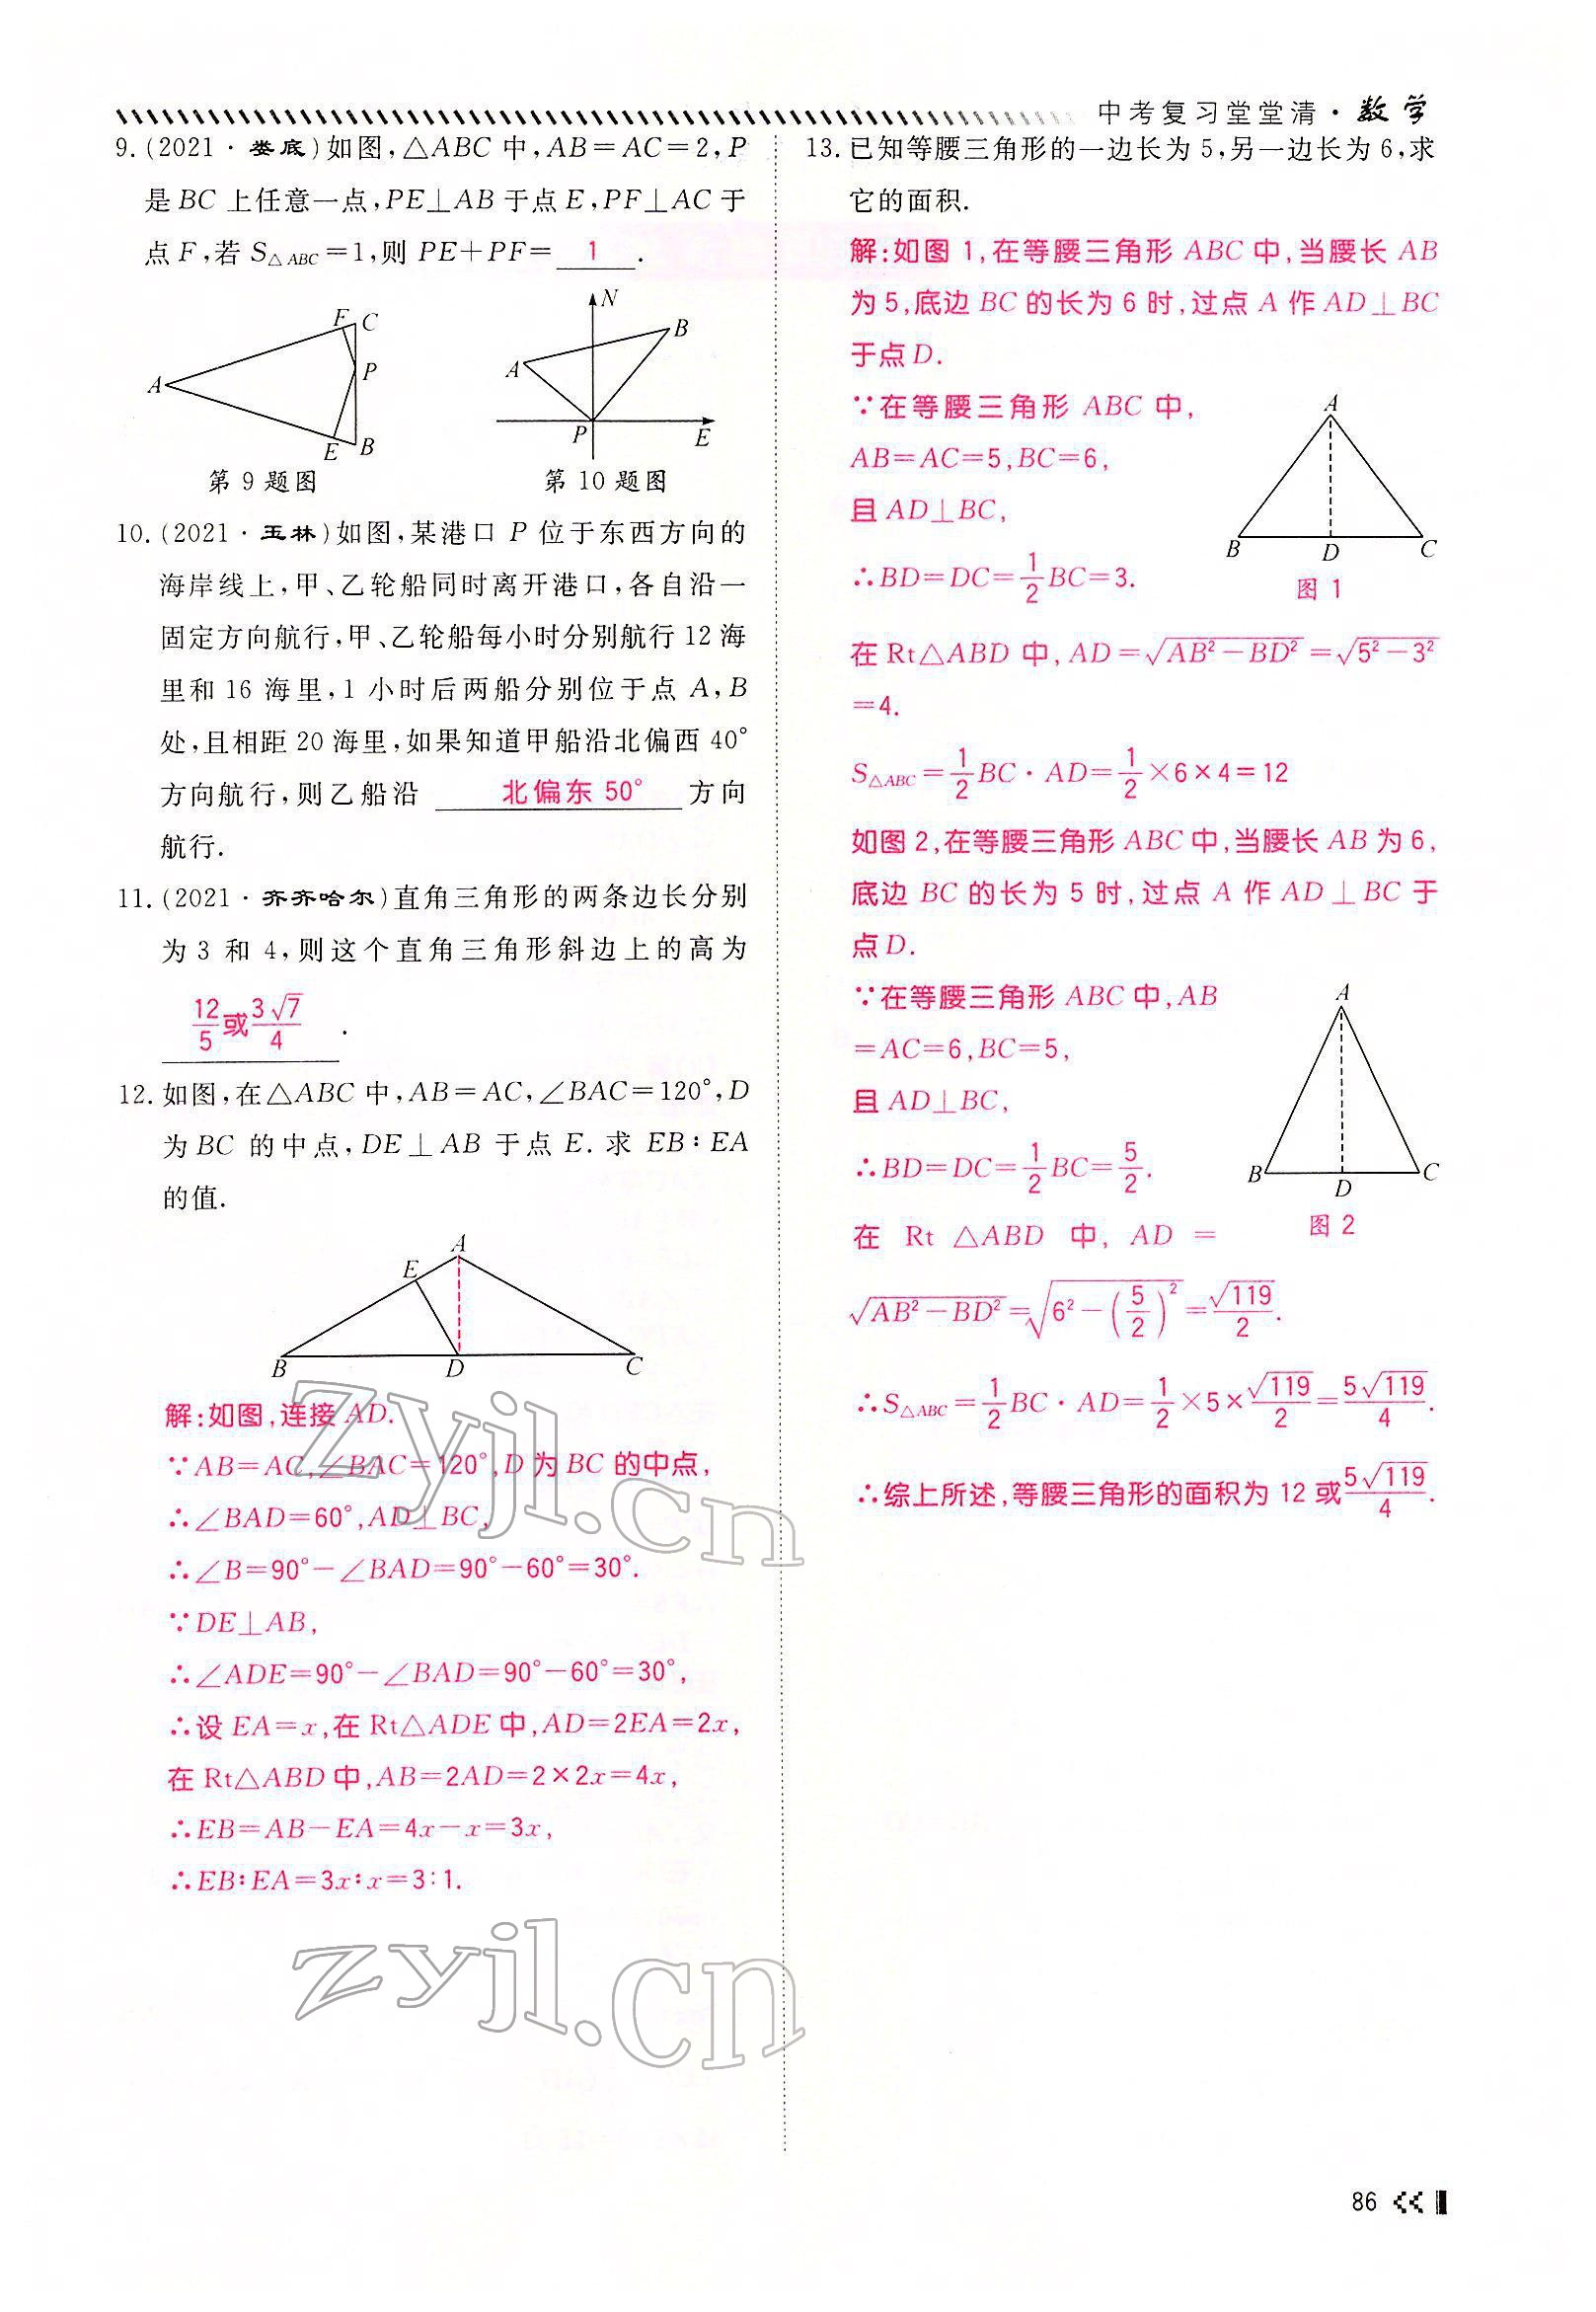 中考复习堂堂清·数学
9.(2021·娄底)如图,△ABC中,AB=AC=2,P
是BC上任意一点,PE⊥AB于点E,PF⊥AC于
点F,若S△ABC=1,则PE+PF= 1 .
F C
A P
E B
第9题图
N
B
A
P E
第10题图
10.(2021·玉林)如图,某港口P位于东西方向的
海岸线上,甲、乙轮船同时离开港口,各自沿一
固定方向航行,甲、乙轮船每小时分别航行12海
里和16海里,1小时后两船分别位于点A,B
处,且相距20海里,如果知道甲船沿北偏西40°
方向航行,则乙船沿 北偏东50° 方向
航行.
11.(2021·齐齐哈尔)直角三角形的两条边长分别
为3和4,则这个直角三角形斜边上的高为
12/5或3√7/4 .
12.如图,在△ABC中,AB=AC,∠BAC=120°,D
为BC的中点,DE⊥AB于点E.求EB∶EA
的值.
A
E
B D C
解:如图,连接AD.
∵AB=AC,∠BAC=120°,D为BC的中点,
∴∠BAD=60°,AD⊥BC,
∴∠B=90°-∠BAD=90°-60°=30°.
∵DE⊥AB,
∴∠ADE=90°-∠BAD=90°-60°=30°,
∴设EA=x,在Rt△ADE中,AD=2EA=2x,
在Rt△ABD中,AB=2AD=2×2x=4x,
∴EB=AB-EA=4x-x=3x,
∴EB∶EA=3x∶x=3∶1.
zyjl.cn
zyjl.cn
13.已知等腰三角形的一边长为5,另一边长为6,求
它的面积.
解:如图1,在等腰三角形ABC中,当腰长AB
为5,底边BC的长为6时,过点A作AD⊥BC
于点D.
∵在等腰三角形ABC中,
AB=AC=5,BC=6,
且AD⊥BC,
∴BD=DC=1/2BC=3.
A
B D C
图1
在Rt△ABD中,AD=√(AB²-BD²)=√(5²-3²)
=4.
S△ABC=1/2BC·AD=1/2×6×4=12
如图2,在等腰三角形ABC中,当腰长AB为6,
底边BC的长为5时,过点A作AD⊥BC于
点D.
∵在等腰三角形ABC中,AB
=AC=6,BC=5,
且AD⊥BC,
∴BD=DC=1/2BC=5/2.
A
B D C
图2
在Rt△ABD中,AD=
√(AB²-BD²)=√(6²-(5/2)²)=√119/2.
∴S△ABC=1/2BC·AD=1/2×5×√119/2=5√119/4.
∴综上所述,等腰三角形的面积为12或5√119/4.
86